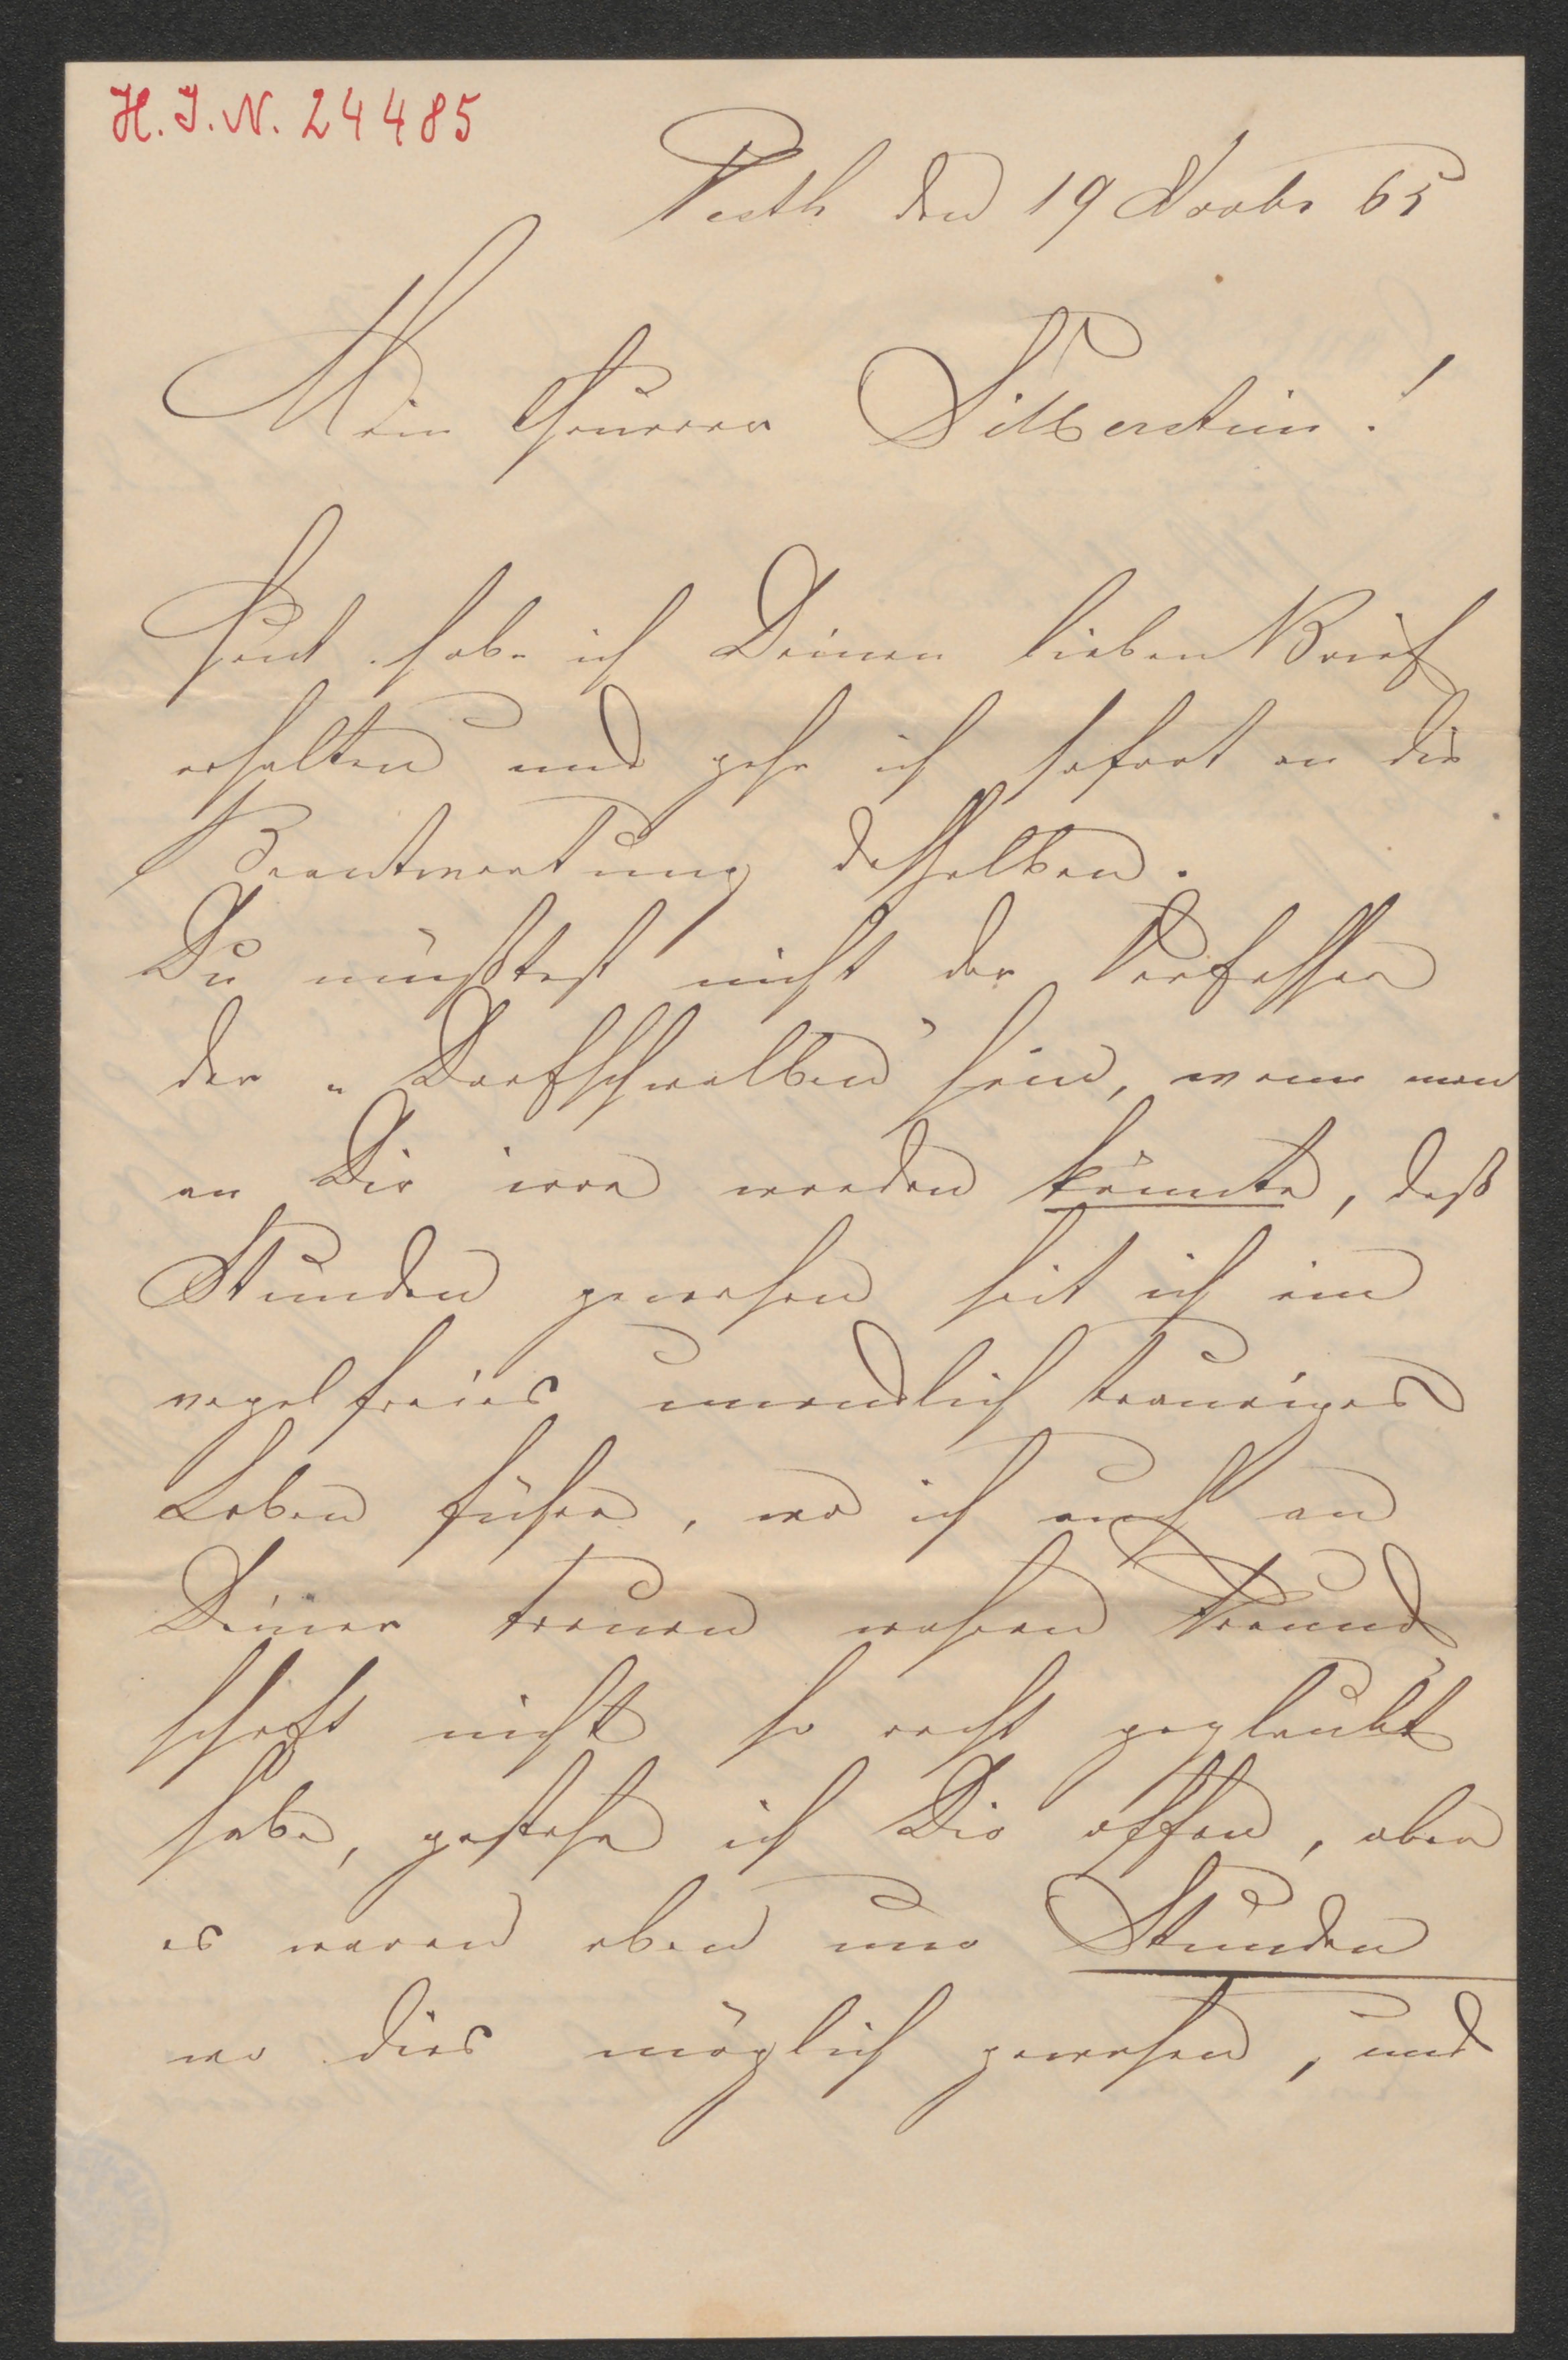 H. J. N. 24485
Pesth den 19 Novbr 65
Mein theurer Silberstein!
Heut habe ich Deinen lieben Brief
erhalten und gehe ich sofort an die
Beantwortung desselben.
Du müßtest nicht der Verfasser
der „Dorfschwalben" sein, wenn man
an Dir irre werden könnte, daß
Stunden gewesen seit ich ein
vogelfreies unendlich trauriges
Leben führe, wo ich auch an
Deiner treuen wahren Freund
schaft nicht so recht geglaubt
habe, gestehe ich Dir offen, aber
es waren eben nur Stunden
wo dies möglich gewesen, und